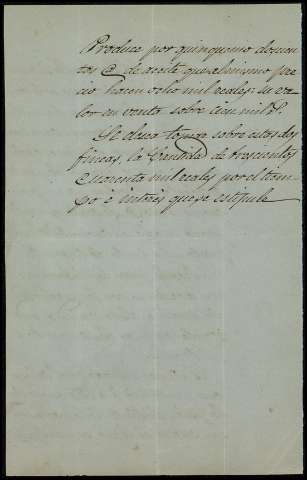 Produce por quinquenio doscien
tos @ de aceite que al mismo pre
cio hacen ocho mil reales: su va
lor en venta sobre cien mil rs.
Se desea tomar sobre estas dos
fincas, la Cantidad de trescientos
Cuarenta mil reales por el tiem-
po é interés que se estipule